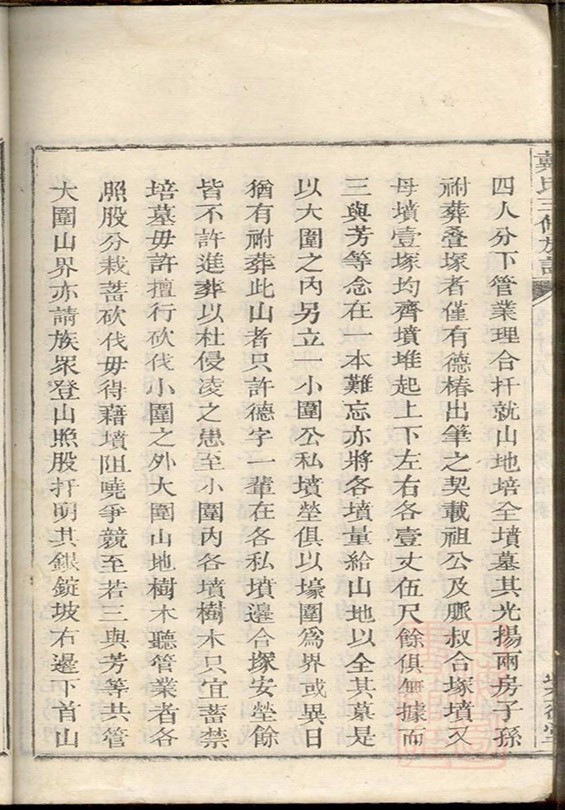 戴氏三修族譜
四人分下管業理合扦就山地培全墳墓其光揚兩房子孫
祔葬叠塚者僅有德椿出筆之契載祖公及脈叔合塚墳又
母墳壹塚均齊墳堆起上下左右各壹丈伍尺餘俱無據而
三與芳等念在一本難忘亦將各墳量給山地以全其墓是
以大圍之內另立一小圍公私墳塋俱以壕圍為界或異日
猶有祔葬此山者只許德字一輩在各私墳邊合塚安塋餘
皆不許進葬以杜侵凌之患至小圍內各墳樹木只宜蓄禁
培墓毋許擅行砍伐小圍之外大圍山地樹木聽管業者各
照股分栽蓄砍伐毋得藉墳阻曉爭競至若三與芳等共管
大圍山界亦請族眾登山照股扦明其銀錠坡右邊下首山